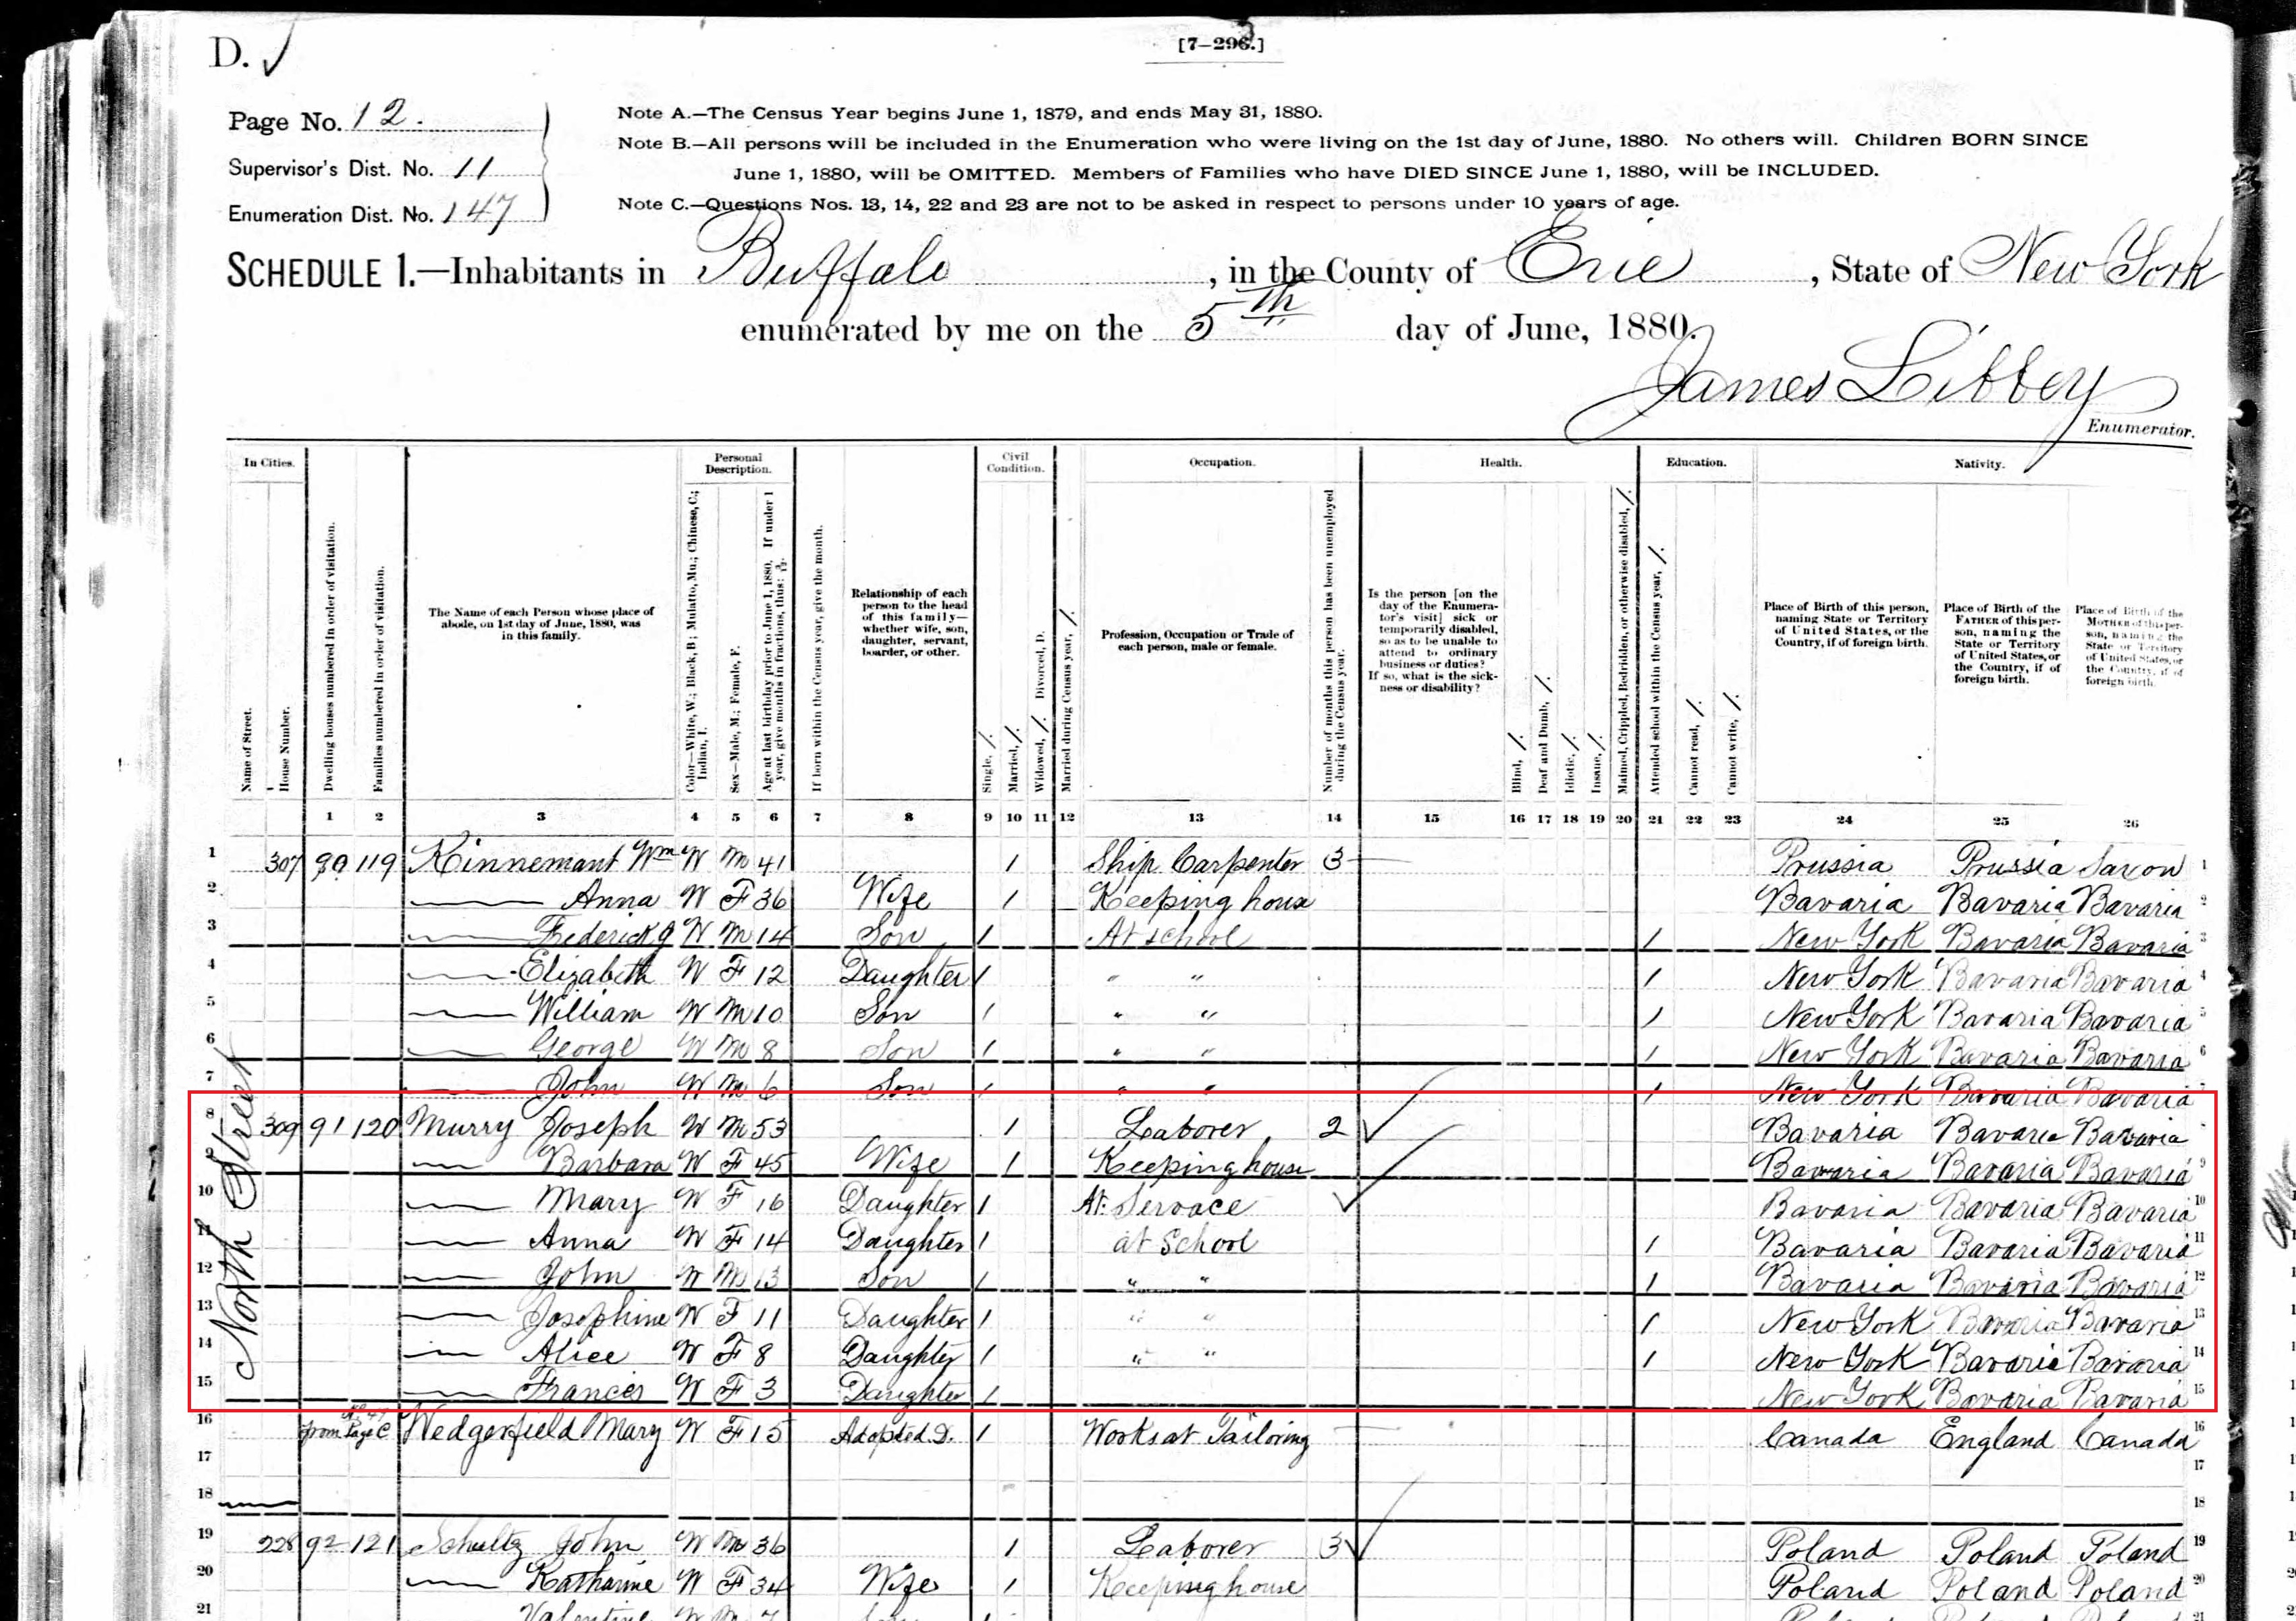 D. ✓
[7–296.]
3
Page No. 12.
Supervisor's Dist. No. 11
Enumeration Dist. No. 147
Note A.—The Census Year begins June 1, 1879, and ends May 31, 1880.
Note B.—All persons will be included in the Enumeration who were living on the 1st day of June, 1880. No others will. Children BORN SINCE
June 1, 1880, will be OMITTED. Members of Families who have DIED SINCE June 1, 1880, will be INCLUDED.
Note C.—Questions Nos. 13, 14, 22 and 23 are not to be asked in respect to persons under 10 years of age.
SCHEDULE 1.—Inhabitants in Buffalo, in the County of Erie, State of New York
enumerated by me on the 5th day of June, 1880.
James Libbey
Enumerator.
In Cities. Personal Description. Civil Condition. Occupation. Health. Education. Nativity.
Name of Street.
House Number.
Dwelling houses numbered in order of visitation.
Families numbered in order of visitation.
The Name of each Person whose place of abode, on 1st day of June, 1880, was in this family.
Color—White, W.; Black, B.; Mulatto, Mu.; Chinese, C.; Indian, I.
Sex—Male, M.; Female, F.
Age at last birthday prior to June 1, 1880. If under 1 year, give months in fractions, thus: 3/12.
If born within the Census year, give the month.
Relationship of each person to the head of this family—whether wife, son, daughter, servant, boarder, or other.
Single, /.
Married, /.
Widowed, /. Divorced, D.
Married during Census year, /.
Profession, Occupation or Trade of each person, male or female.
Number of months this person has been unemployed during the Census year.
Is the person [on the day of the Enumerator's visit] sick or temporarily disabled, so as to be unable to attend to ordinary business or duties? If so, what is the sickness or disability?
Blind, /.
Deaf and Dumb, /.
Idiotic, /.
Insane, /.
Maimed, Crippled, Bedridden, or otherwise disabled, /.
Attended school within the Census year, /.
Cannot read, /.
Cannot write, /.
Place of Birth of this person, naming State or Territory of United States, or the Country, if of foreign birth.
Place of Birth of the FATHER of this person, naming the State or Territory of United States, or the Country, if of foreign birth.
Place of Birth of the MOTHER of this person, naming the State or Territory of United States, or the Country, if of foreign birth.
1 2 3 4 5 6 7 8 9 10 11 12 13 14 15 16 17 18 19 20 21 22 23 24 25 26
North Street
1 307 90 119 Kinnemant Wm W M 41 1 Ship Carpenter 3 Prussia Prussia Saxon 1
2 Anna W F 36 Wife 1 Keeping house Bavaria Bavaria Bavaria 2
3 Frederick J W M 14 Son 1 At school 1 New York Bavaria Bavaria 3
4 Elizabeth W F 12 Daughter 1 " " 1 New York Bavaria Bavaria 4
5 William W M 10 Son 1 " " 1 New York Bavaria Bavaria 5
6 George W M 8 Son 1 " " 1 New York Bavaria Bavaria 6
7 John W M 6 Son 1 " " 1 New York Bavaria Bavaria 7
8 309 91 120 Murry Joseph W M 53 1 Laborer 2 ✓ Bavaria Bavaria Bavaria
9 Barbara W F 45 Wife 1 Keeping house Bavaria Bavaria Bavaria 9
10 Mary W F 16 Daughter 1 At Servace ✓ Bavaria Bavaria Bavaria 10
11 Anna W F 14 Daughter 1 at School 1 Bavaria Bavaria Bavaria 11
12 John W M 13 Son 1 " " 1 Bavaria Bavaria Bavaria 12
13 Josephine W F 11 Daughter 1 " " 1 New York Bavaria Bavaria 13
14 Alice W F 8 Daughter 1 " " 1 New York Bavaria Bavaria 14
15 Frances W F 3 Daughter 1 New York Bavaria Bavaria 15
16 from Page C Wedgerfield Mary W F 15 Adopted D. 1 Works at Tailoring Canada England Canada 16
17 17
18 18
19 228 92 121 Schultz John W M 36 1 Laborer 3 ✓ Poland Poland Poland 19
20 Katharine W F 34 Wife 1 Keeping house Poland Poland Poland 20
21 Valentine W M 7 21